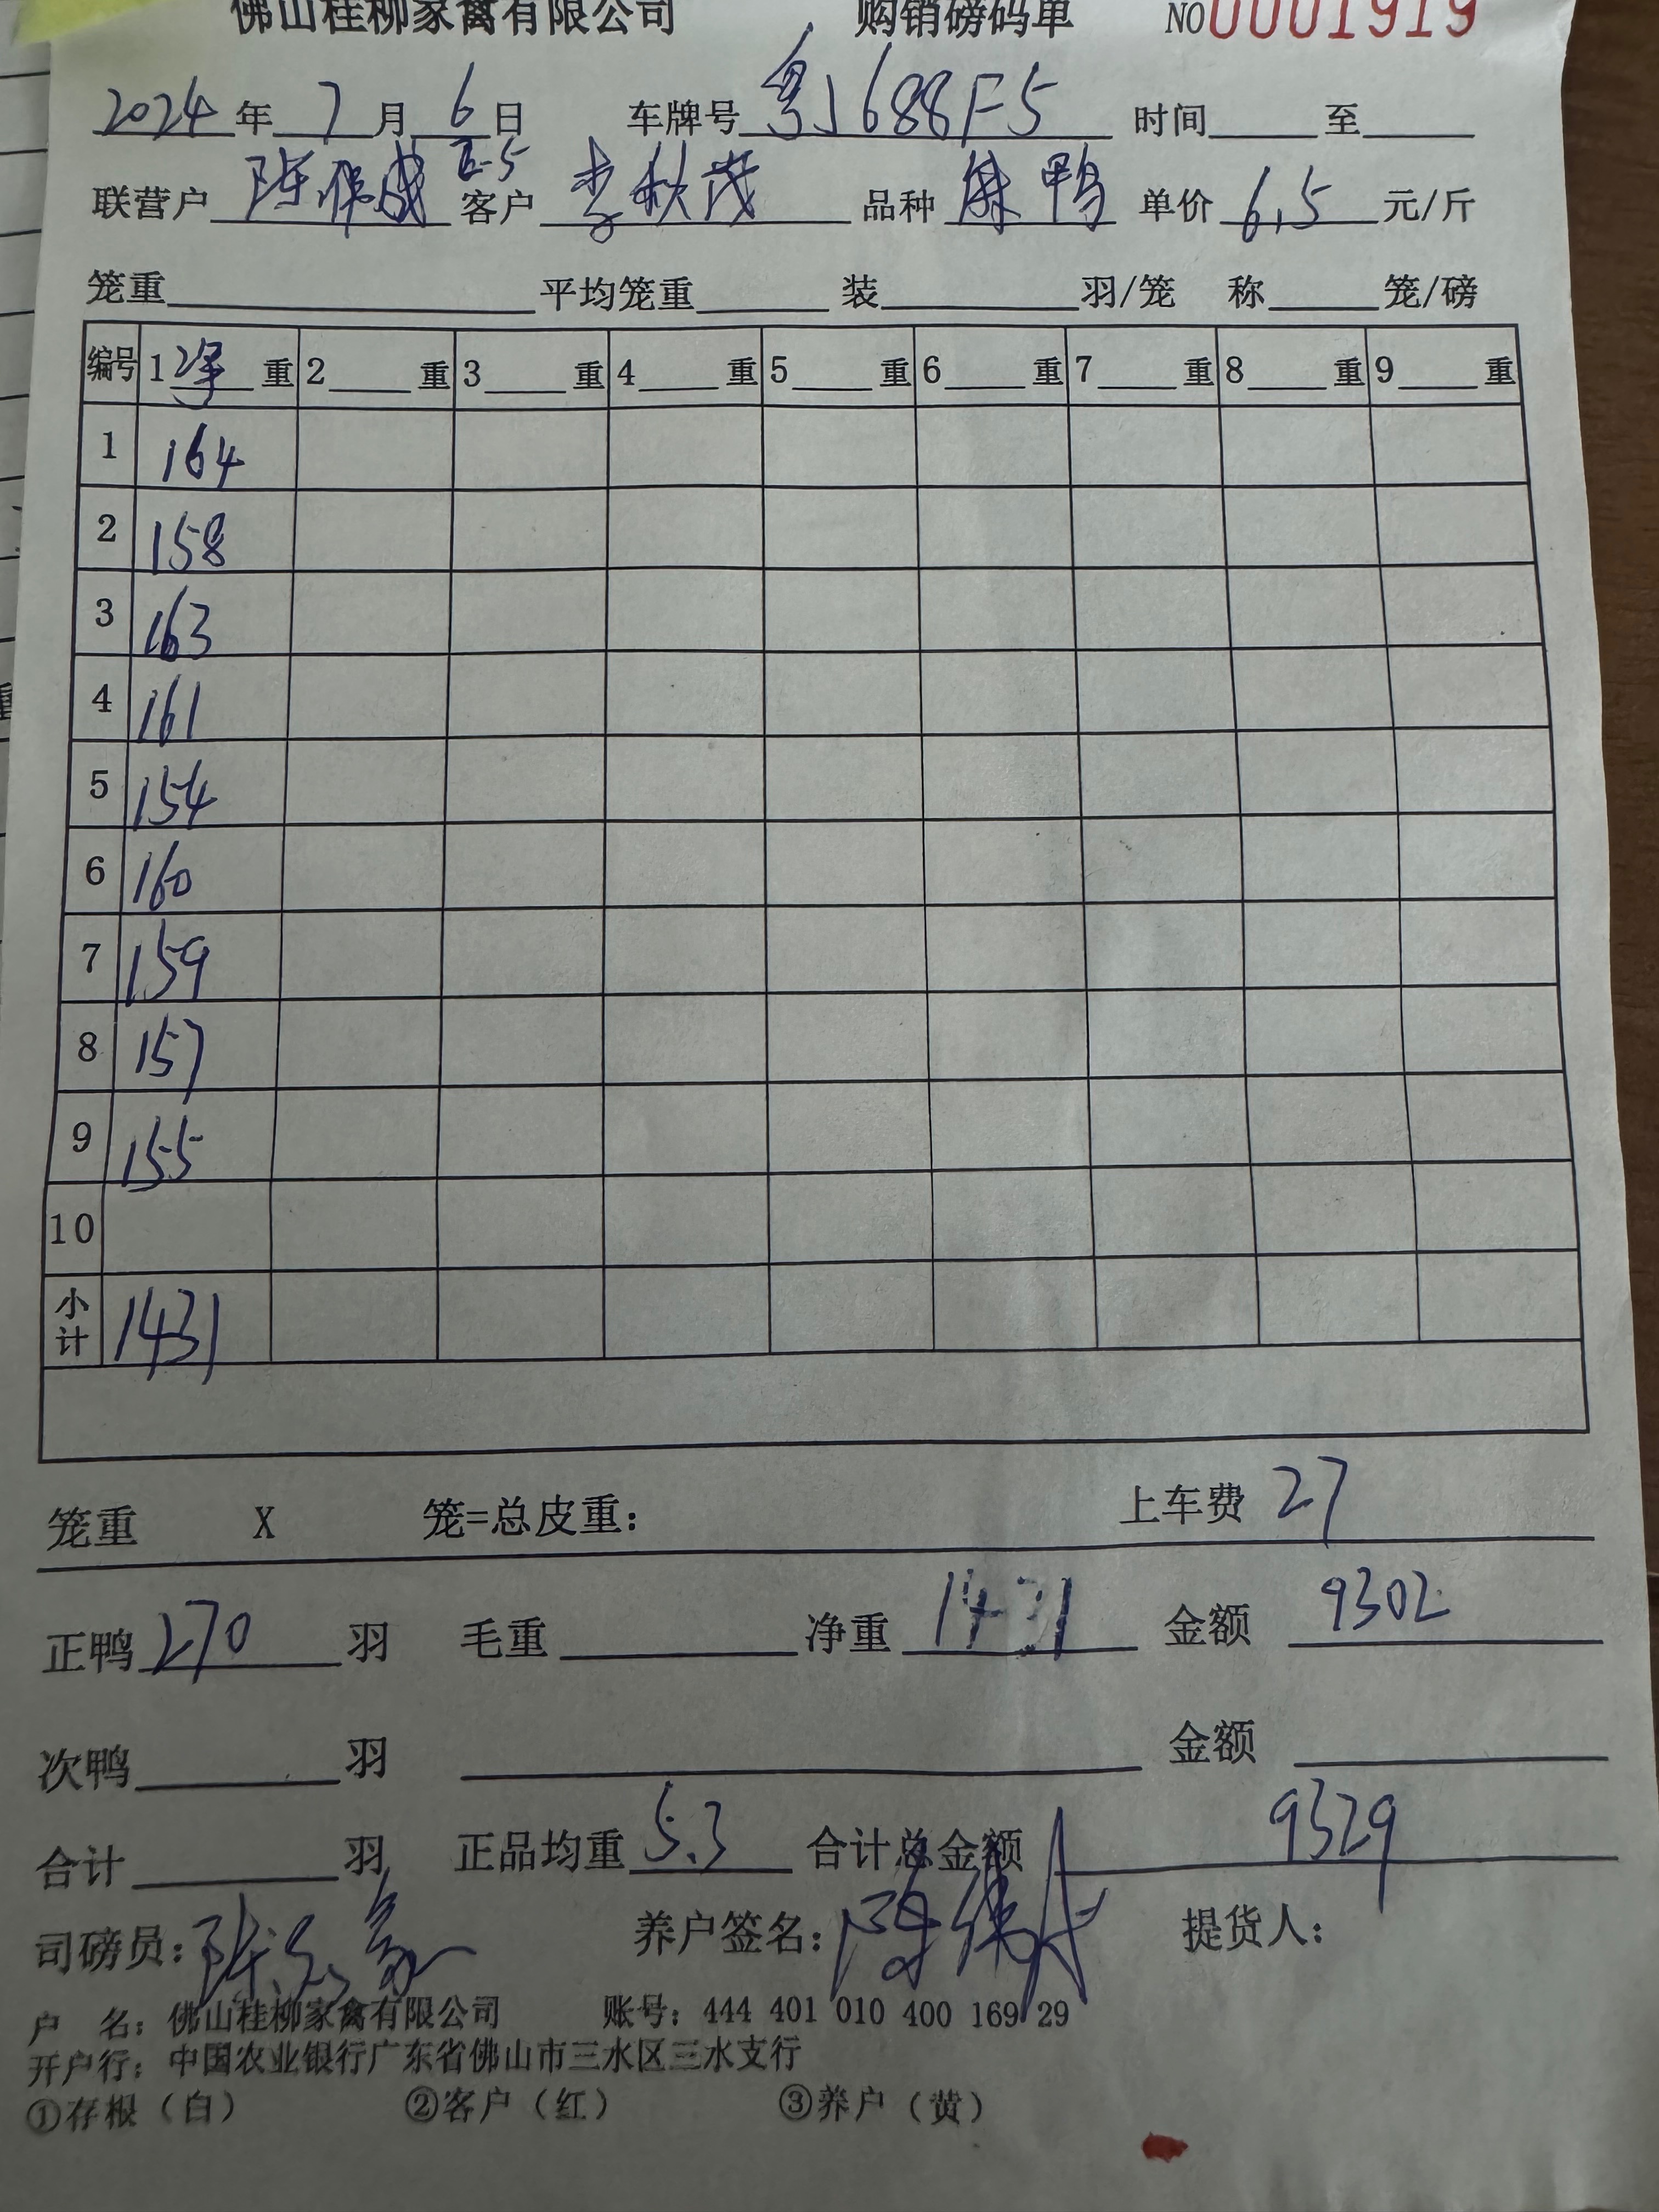 佛山桂柳家禽有限公司 购销磅码单 NO0001919
2024年7月6日 车牌号粤J688F5 时间 至
联营户 陈伟成 E-5 客户 李秋茂 品种 麻鸭 单价 6.5 元/斤
笼重 平均笼重 装 羽/笼 称 笼/磅
编号 1净重 2 重 3 重 4 重 5 重 6 重 7 重 8 重 9 重
1 164
2 158
3 163
4 161
5 154
6 160
7 159
8 157
9 155
10
小计 1431
笼重 X 笼=总皮重: 上车费 27
正鸭 270 羽 毛重 净重 1431 金额 9302
次鸭 羽 金额
合计 羽 正品均重 5.3 合计总金额 9329
司磅员: 养户签名: 陈伟成 提货人:
户 名: 佛山桂柳家禽有限公司 账号: 444 401 010 400 169 29
开户行: 中国农业银行广东省佛山市三水区三水支行
①存根（白） ②客户（红） ③养户（黄）
重